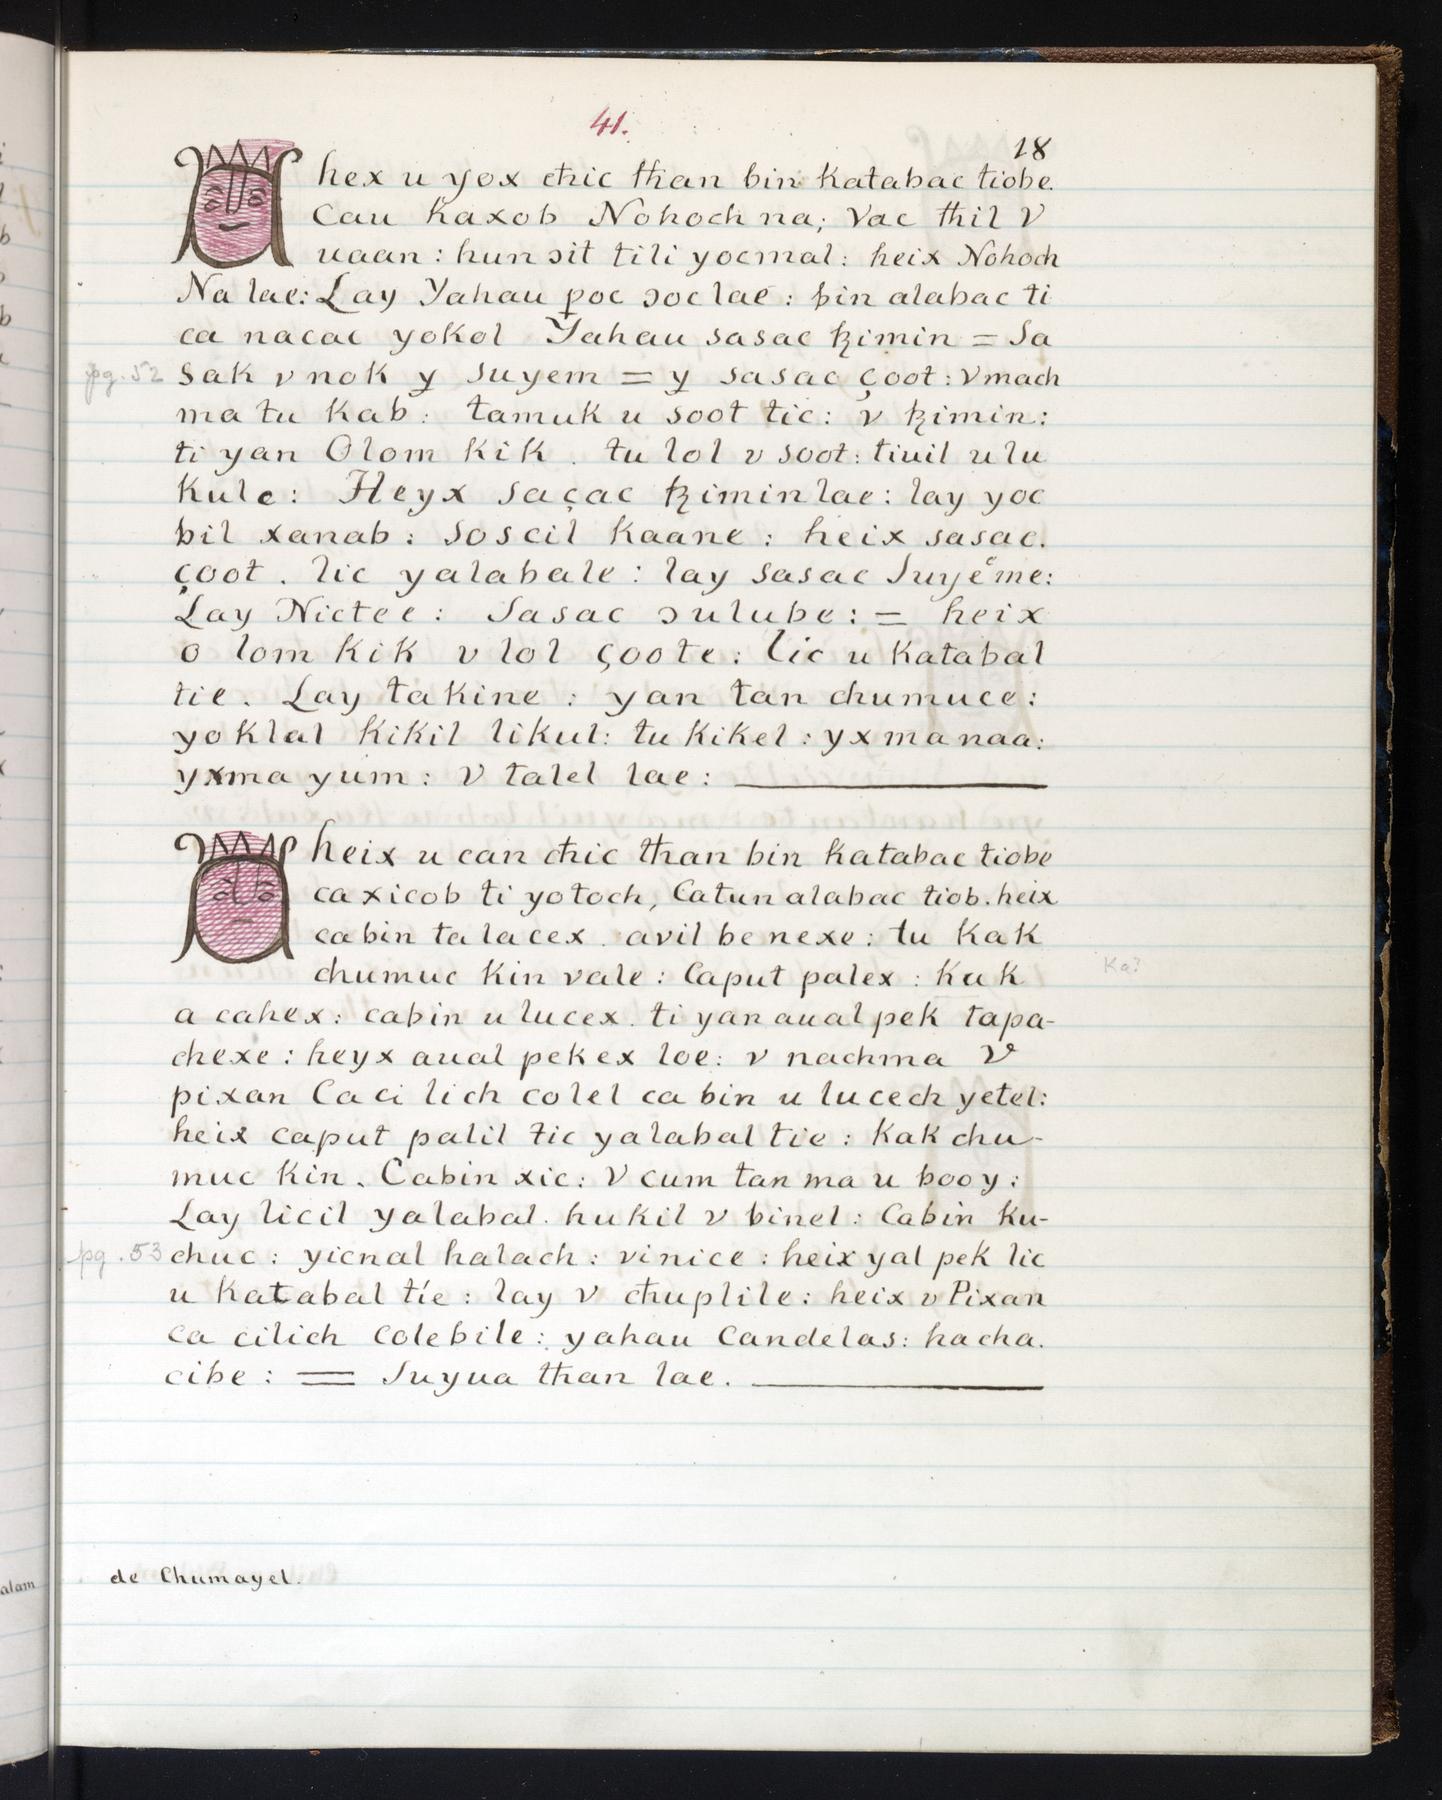 41.
18
hex u yox chic than bin katabac tiobe.
Cau kaxob Nohoch na; Vac thil V
uaan : hun ɔit tili yocmal : heix Nohoch
Na lae: Lay Yahau poc ɔoc lae : bin alabac ti
ca nacac yokol Yahau sasac tzimin = Sa
pg. 52 Sak v nok y Suyem = y sasac çoot : Vmach
ma tu kab : tamuk u soot tic : v tzimin :
ti yan Olom kik . tu lol v soot : tiuil u lu
kule : Heyx saçac tzimin lae : lay yoc
bil xanab : soscil kaane : heix sasac.
çoot . lic yalabale : lay sasac Suyeme :
Lay Nictee : Sasac ɔulube : = heix
o lom kik v lol çoote : lic u katabal
tie . Lay takine : yan tan chumuce :
yoklal kikil likul : tu kikel : yx ma naa :
yxma yum : V talel lae :
heix u can chic than bin katabac tiobe
ca xicob ti yotoch, Catun alabac tiob. heix
cabin talacex . avil benexe : tu kak
chumuc kin vale : Caput palex : kuk
Ka?
a cahex : cabin u lucex . ti yan aual pek tapa-
chexe : heyx aual pekex loe : v nachma V
pixan Ca ci lich colel ca bin u lucech yetel :
heix caput palil tic yalabal tie : kak chu-
muc kin . Cabin xic : V cum tan ma u booy :
Lay licil yalabal . hukil v binel : Cabin ku-
pg. 53 chuc : yicnal halach : vinice : heix yal pek lic
u katabal tíe : lay v chuplile : heix v Pixan
ca cilich colebile : yahau Candelas : hacha.
cibe : = Suyua than lae .
de Chumayel.
alam